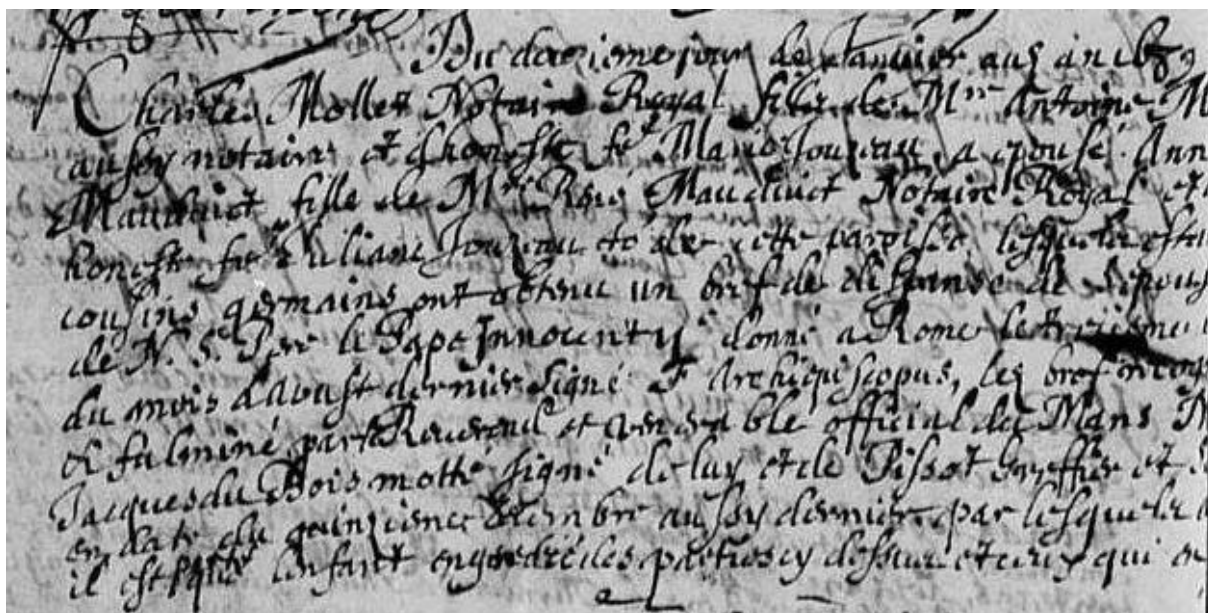 Du douziemejour de Janvier aud an 1679
Charles Mollet Notaire Royal fils de Mre Antoine M
aussy notaire et dhoneste fe Marie Louzeau a epousé Ann
Mauduict fille de Mre René Mauduict Notaire Royal et
honeste fe Juliane Louzeau de cette paroisse lesquels estan
cousins germains ont obtenu un bref de dispanse de sepous
de N. S. Pere le Pape Innocent 11 donné a Rome le treisieme
du mois daoust dernier signé Archiepiscopus, led bref
& fulminé par le Reverend et venerable official du Mans M
Jacques du Bois motthé signé de luy et de Pissot Greffier et
en date du quinzieme decembre aussy dernier par lesquels
il est lenfant engendré des parties cy dessus et ceux qui